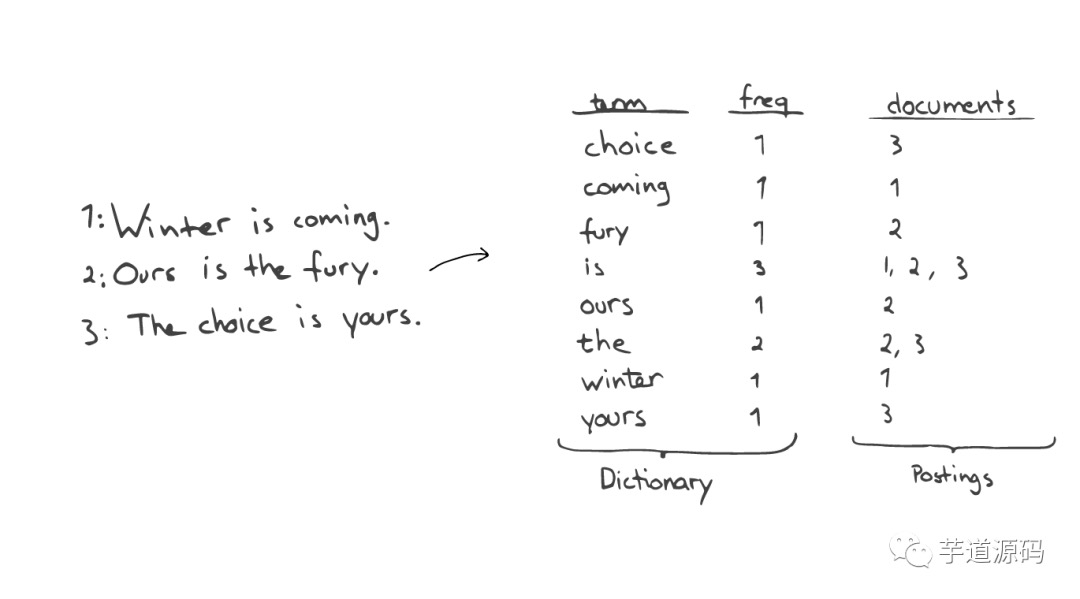 1: Winter is coming.
2: Ours is the fury.
3: The choice is yours.
term freq documents
choice 1 3
coming 1 1
fury 1 2
is 3 1, 2, 3
ours 1 2
the 2 2, 3
winter 1 1
yours 1 3
Dictionary Postings
芋道源码